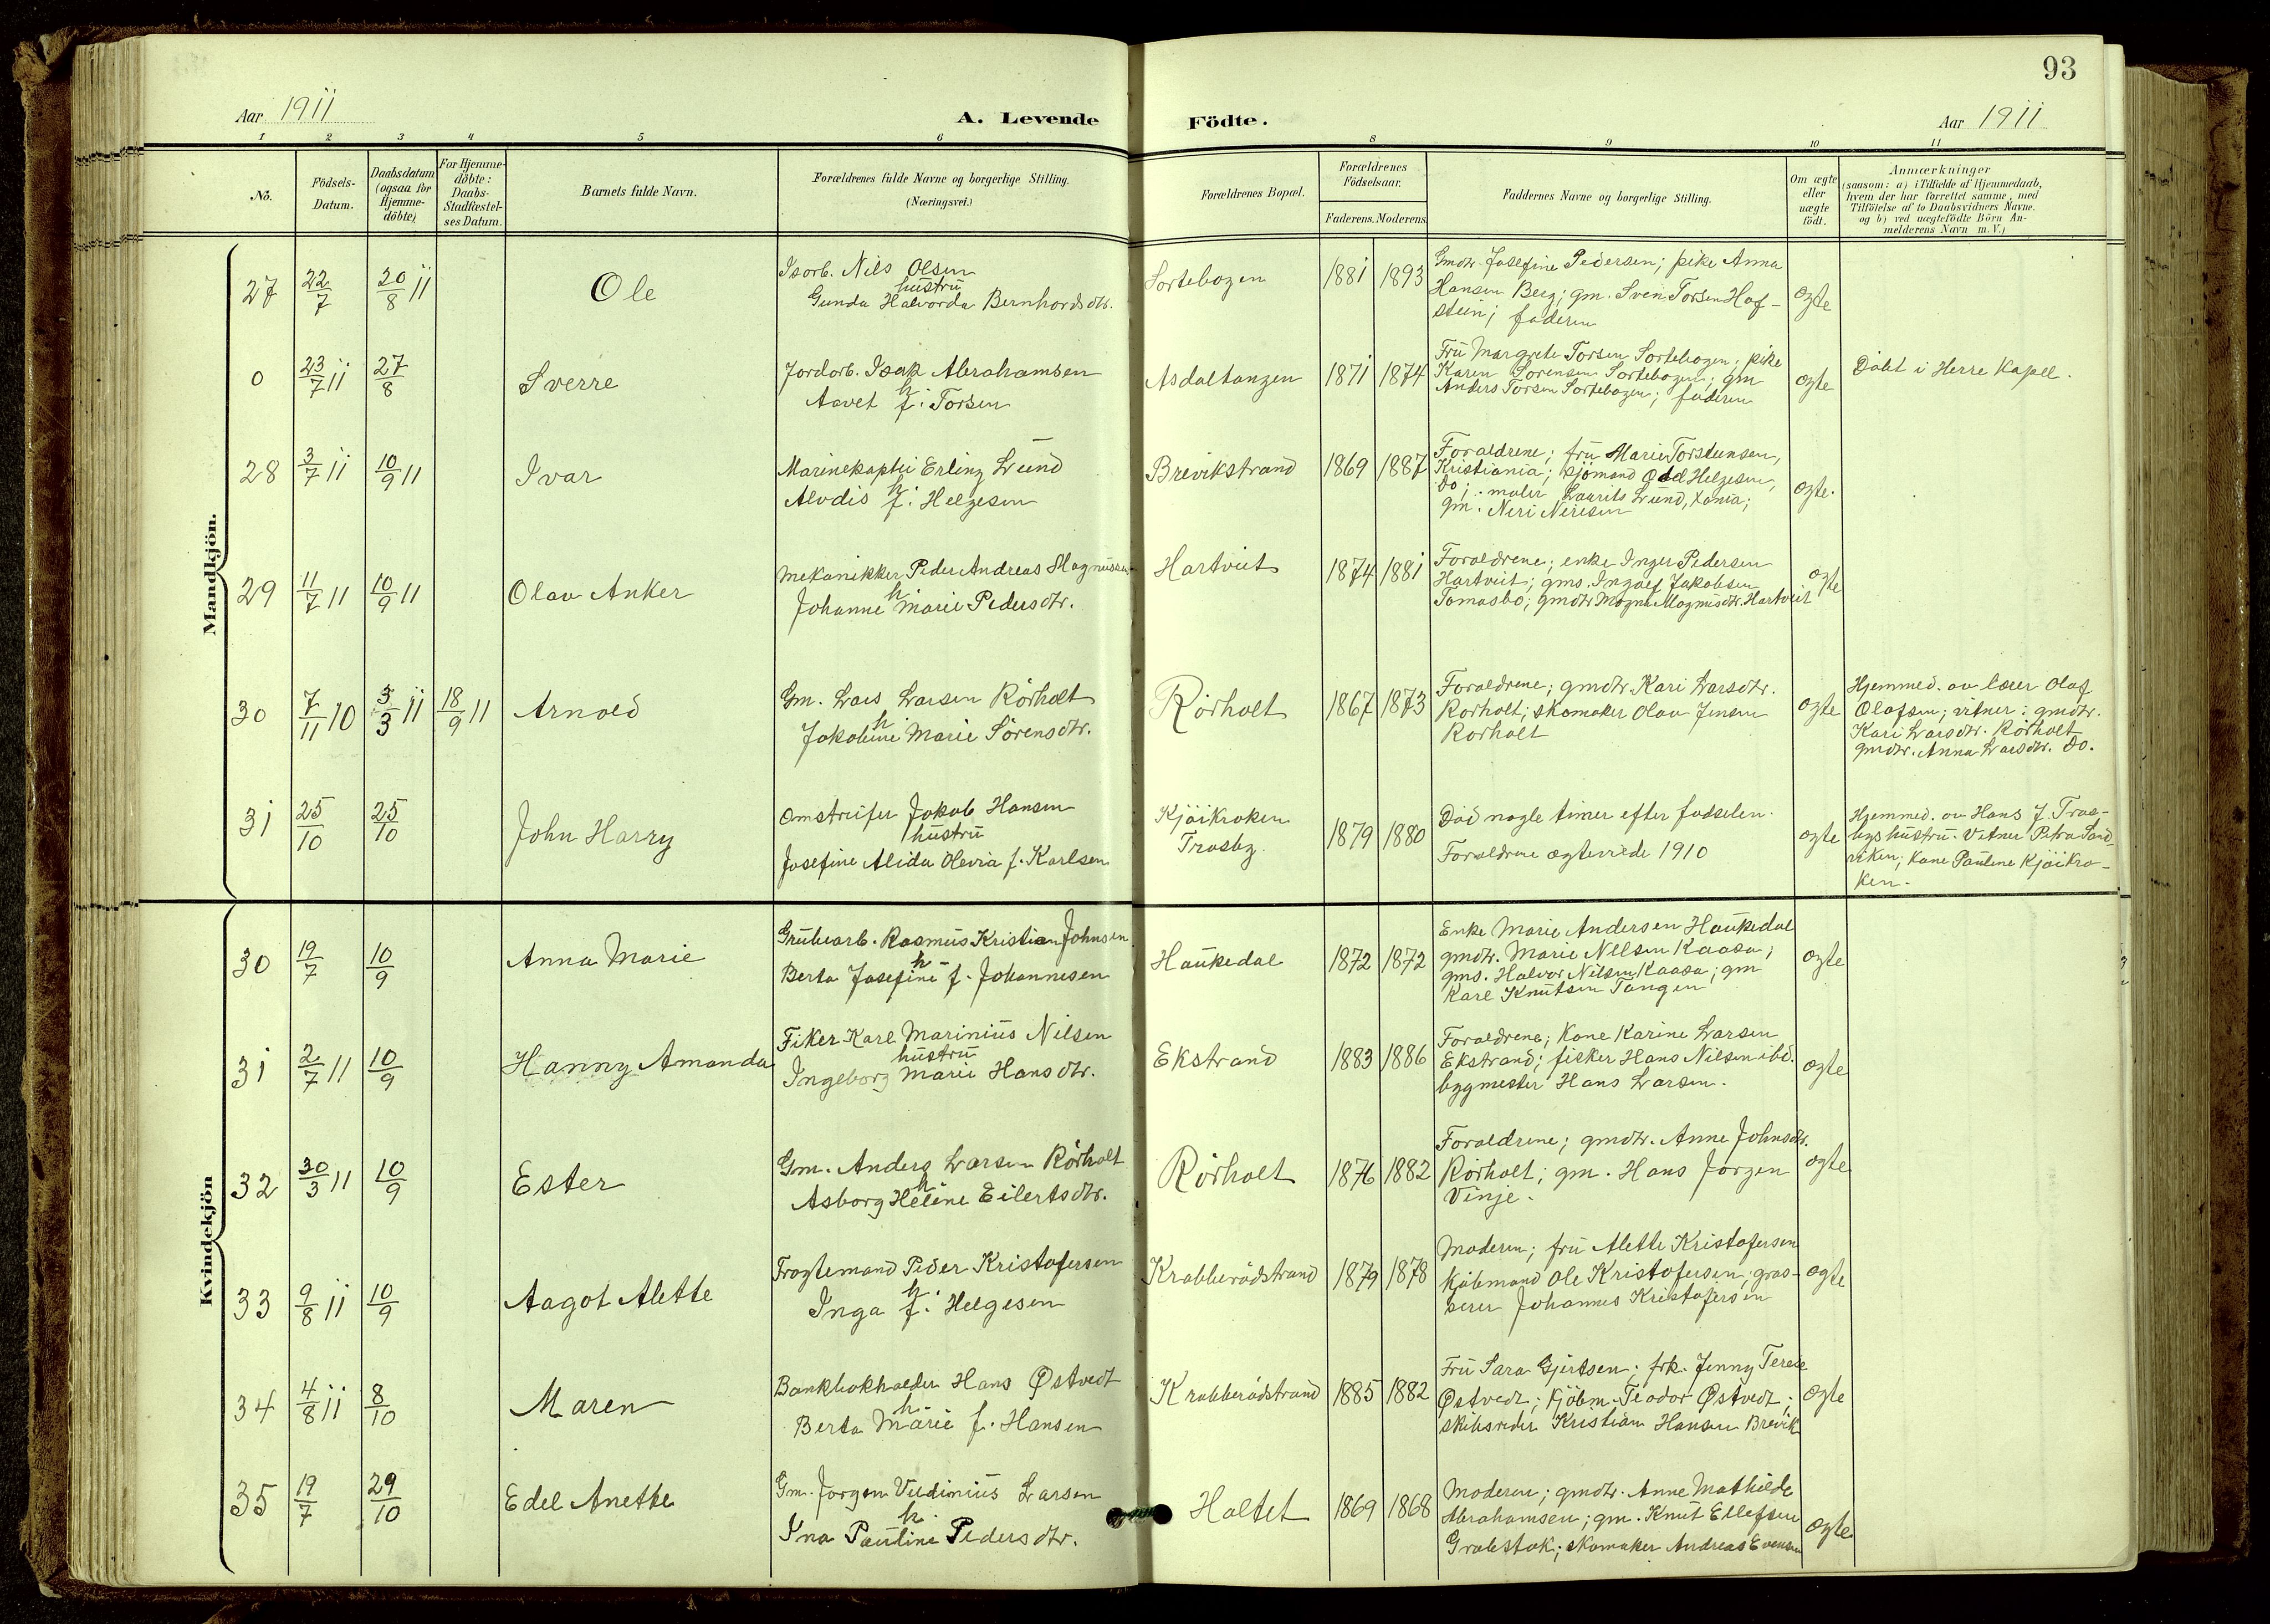 93
Aar 1911 A. Levende Födte. Aar 1911
1 2 3 4 5 6 8 9 10 11
No. Födsels-Datum. Daabsdatum (ogsaa for Hjemme-döbte) For Hjemme-döbte: Daabs-Stadfæstel-ses Datum. Barnets fulde Navn. Forældrenes fulde Navne og borgerlige Stilling. (Næringsvei.) Forældrenes Bopæl. Forældrenes Födselsaar. Faderens. Moderens. Faddernes Navne og borgerlige Stilling. Om ægte eller uægte födt. Anmærkninger (saasom: a) i Tilfælde af Hjemmedaab, hvem der har forrettet samme, med Tilföielse af to Daabsvidners Navne. og b) ved uægtefödte Börn An-melderens Navn m.V.)
Mandkjön.
27 22/7 20/8 11 Ole
Isarb. Nils Olsen
hustru
Gunda Halvorda Bernhardsdtr.
Sortebogen 1881 1893
Gmdtr. Josefine Pedersen; pike Anna
Hansen Berg; gm. Sven Torsen Haf-
stein; faderen
ægte
0 23/7 11 27/8 Sverre
Jordarb. Isak Abrahamsen
h.
Aavet f. Torsen
Asdaltangen 1871 1874
Fru Margrete Torsen Sortebogen; pike
Karen Sørensen Sortebogen; gm
Anders Torsen Sortebogen; faderen
ægte
Døbt i Herre Kapel.
28 3/7 11 10/9 11 Ivar
Marinekaptei Erling Lund
h
Alvdis f. Helgesen
Brevikstrand 1869 1887
Forældrene; fru Marie Torstensen,
Kristiania; sjömand Odd Helgesen,
do; maler Laurits Lund, Xania;
gm. Neri Nerisen
ægte.
29 11/7 11 10/9 11 Olav Anker
Mekanikker Peder Andreas Magnussen
h
Johanne Marie Pedersdtr.
Hartvit 1874 1881
Forældrene; enke Inger Pedersen
Hartvit; gms. Ingolf Jakobsen
Tomasbo; gmdtr Magna Magnusdtr. Hartvit
ægte
30 7/11 10 5/3 11 18/9 11 Arnold
Gm. Lars Larsen Rörholt
h
Jakobine Marie Sörensdtr.
Rörholt 1867 1873
Forældrene; gmdtr. Kari Larsdtr.
Rörholt; skomaker Olav Jensen
Rörholt
ægte
Hjemmed. av lærer Olaf
Olafsen; vitner: gmdtr.
Kari Larsdtr. Rörholt
gmdtr. Anna Larsdtr. do.
31 25/10 25/10 John Harry
Jakob Hansen
hustru
Josefine Alida Olevia f. Karlsen
Kjöikroken
Trosby. 1879 1880
Död nogle timer efter fødselen.
Forældrene ægteviede 1910
ægte
Hjemmed. av Hans J. Tros-
bys hustru. Vitner Petra Sand
viken; kone Pauline Kjöikro-
ken.
Kvindekjön
30 19/7 10/9 Anna Marie
Grubearb. Rasmus Kristian Johnsen
h
Berta Josefine f. Johannesen
Haukedal 1872 1872
Enke Marie Andersen Haukedal
gmdtr. Marie Nilsen Kaasa;
gms. Halvor Nilsen Kaasa; gm
Karl Knutsen Tangen
ægte
31 2/7 11 10/9 Hanny Amanda
Fiker Karl Marinius Nilsen
hustru
Ingeborg Marie Hansdtr.
Ekstrand 1883 1886
Forældrene; Kone Karine Larsen
Ekstrand; fisker Hans Nilsen ibd.
bygmester Hans Larsen.
ægte
32 30/3 11 10/9 Ester
Gm. Anders Larsen Rörholt
h
Asborg Heléne Eilertsdtr.
Rörholt 1876 1882
Forældrene; gmdtr. Anne Johnsdtr.
Rörholt; gm. Hans Jörgen
Vinje.
ægte
33 9/8 11 10/9 Aagot Alette
Fragtemand Peder Kristofersen
h
Inga f. Helgesen
Krabberödstrand 1879 1878
Moderen; fru Alette Kristofersen
kjöbmand Ole Kristofersen; gros-
serer Johannes Kristofersen
ægte
34 4/8 11 8/10 Maren
Bankbokholder Hans Østvedt
h
Berta Marie f. Hansen
Krabberödstrand 1885 1882
Fru Sara Gjertsen; frk. Jenny Terese
Østvedt; kjöbm. Teodor Østvedt;
skibsreder Kristian Hansen Brevik
ægte
35 19/7 29/10 Edel Anette
Gm. Jörgen Larsen
h.
Ina Pauline Pedersdtr.
Holtet 1869 1868
Moderen; gmdtr. Anne Mathilde
Abrahamsen; gm. Knut Ellefsen
Grobstok; skomaker Andreas Evensen
ægte